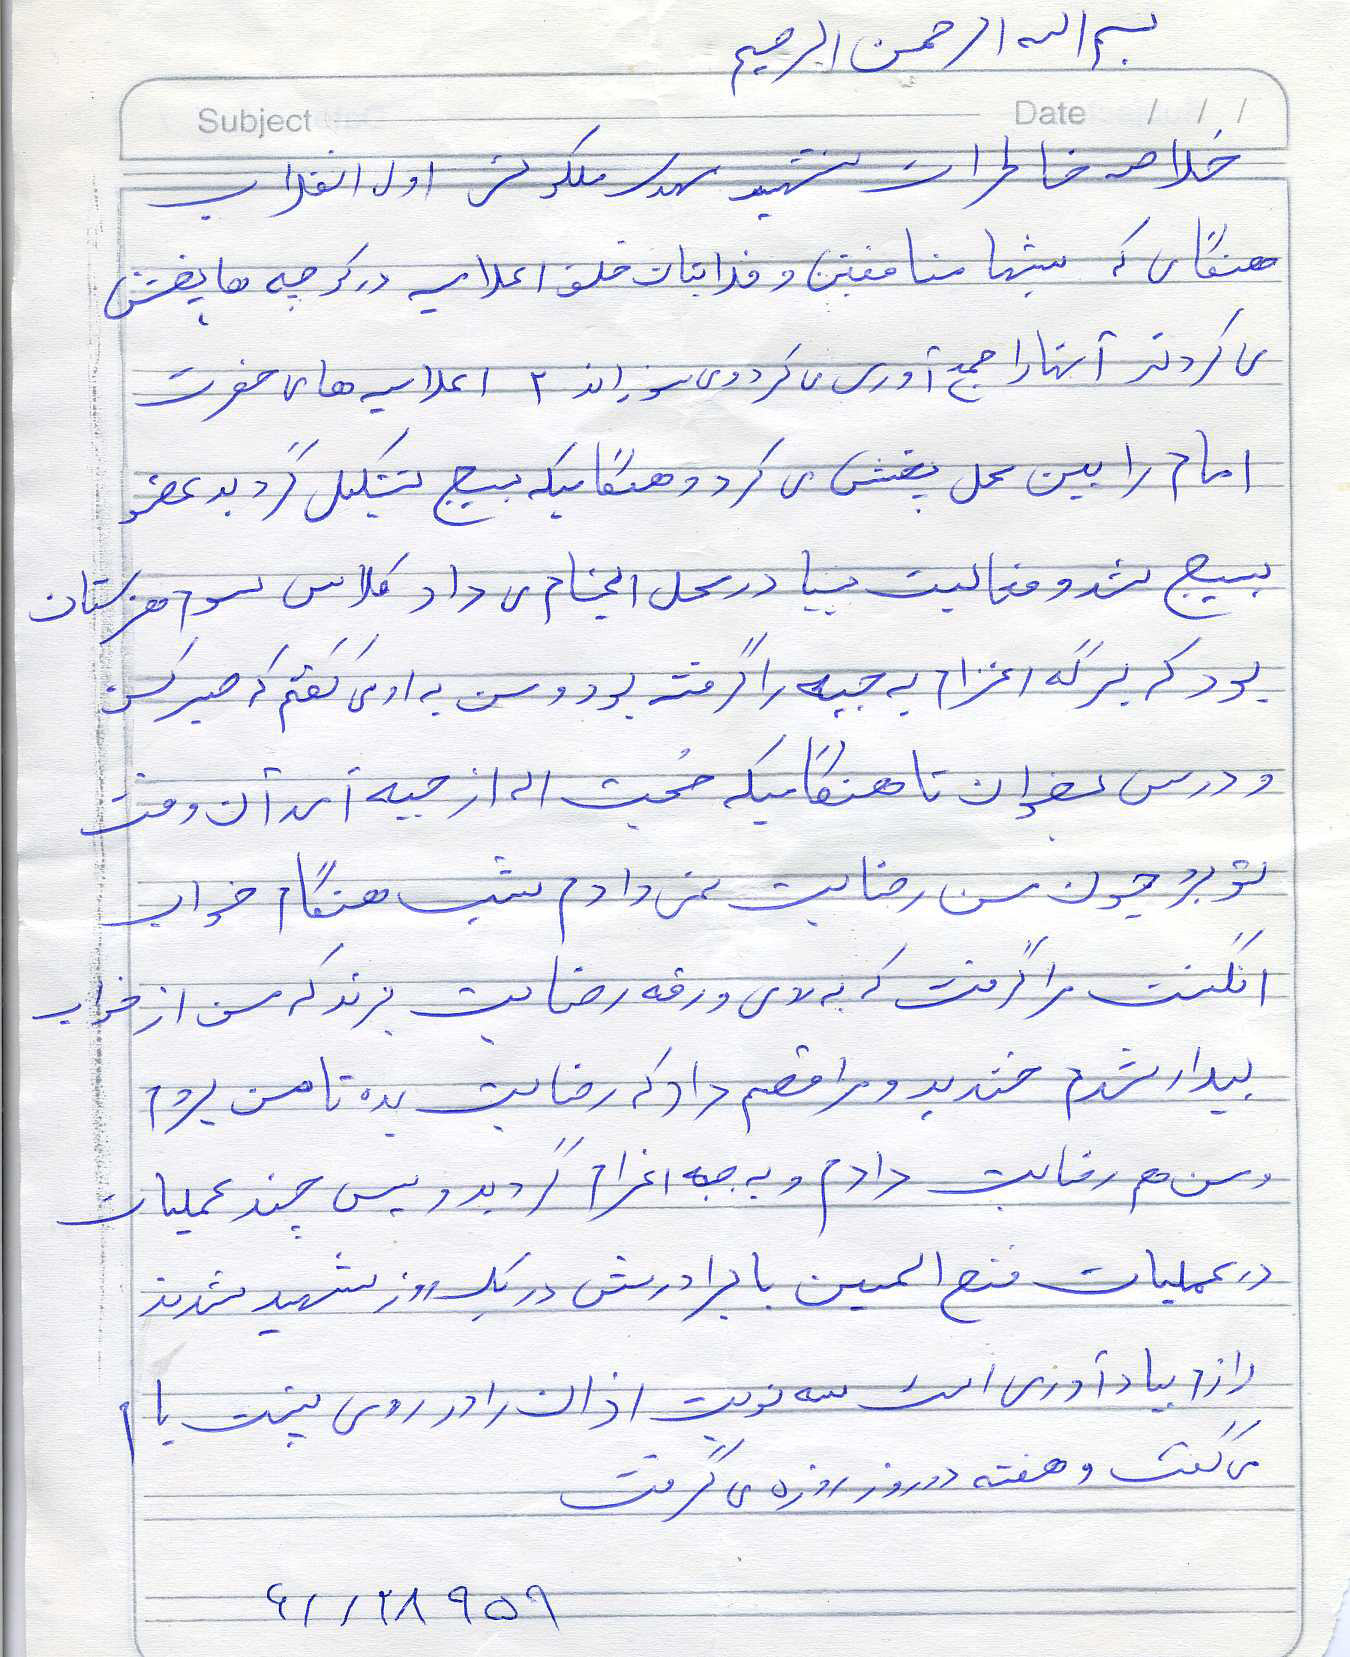 بسم الله الرحمن الرحیم
Subject Date / / /
خلاصه خاطرات شهید مهدی ملکوتی اول انقلاب
هنگامی که شبها منافقین و فدائیان خلق اعلامیه در کوچه ها پخش
می کردند آنها را جمع آوری می کرد و می سوزاند ۲ اعلامیه های حضرت
امام را بین محل پخش می کرد و هنگامیکه بسیج تشکیل گردید عضو
بسیج شد و فعالیت در محل انجام می داد کلاس سوم هنرستان
بود که برگه اعزام به جبهه را گرفته بود و من به او می گفتم که صبر کن
و درس بخوان تا هنگامیکه حجت اله از جبهه آمد آن وقت
تو برو چون من رضایت نمی دادم شب هنگام خواب
انگشت مرا گرفت که به لای ورقه رضایت بزند که من از خواب
بیدار شدم خندید و مرا قسم داد که رضایت بده تا من بروم
و من هم رضایت دادم و به جبهه اعزام گردید و پس چند عملیات
در عملیات فتح المبین با برادرش در یک روز شهید شدند
لازم بیادآوری است سه نوبت اذان را در روی پشت بام
می گفت و هفته دو روز روزه می گرفت
۶۱۱۲۸۹۵۹